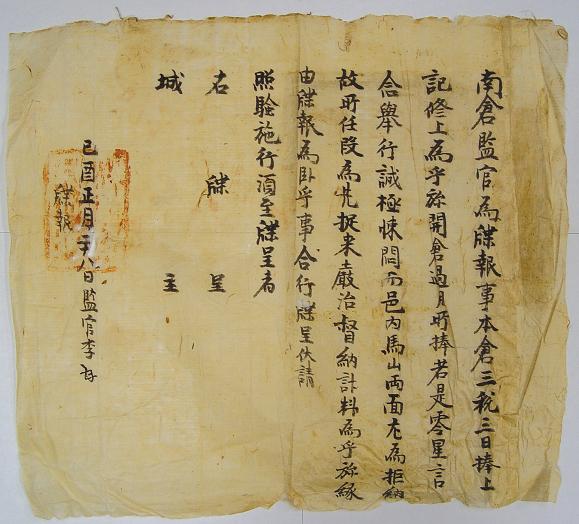 南倉監官為牒報事本倉三稅三日捧上
記修上為乎旀開倉過月所捧若是零星言
念舉行誠極悚悶而邑內馬山両面尤為拒納
故所任段為先捉来嚴治督納計料為乎旀緣
由牒報為卧乎事合行牒呈伏請
照驗施行湏至牒呈者
右 牒 呈
城 主
己酉正月二十八日監官李
牒報